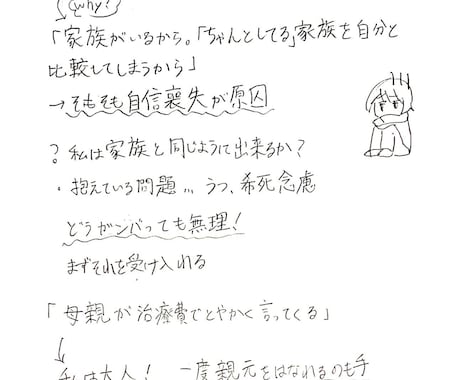 (why?)
「家族がいるから。「ちゃんとしてる」家族を自分と
比較してしまうから」
→そもそも自信喪失が原因
? 私は家族と同じように出来るか?
・抱えている問題… うつ、希死念慮
どうガンバっても無理!
まずそれを受け入れる
「母親が治療費でとやかく言ってくる」
私は大人! 一度親元をはなれるのも手